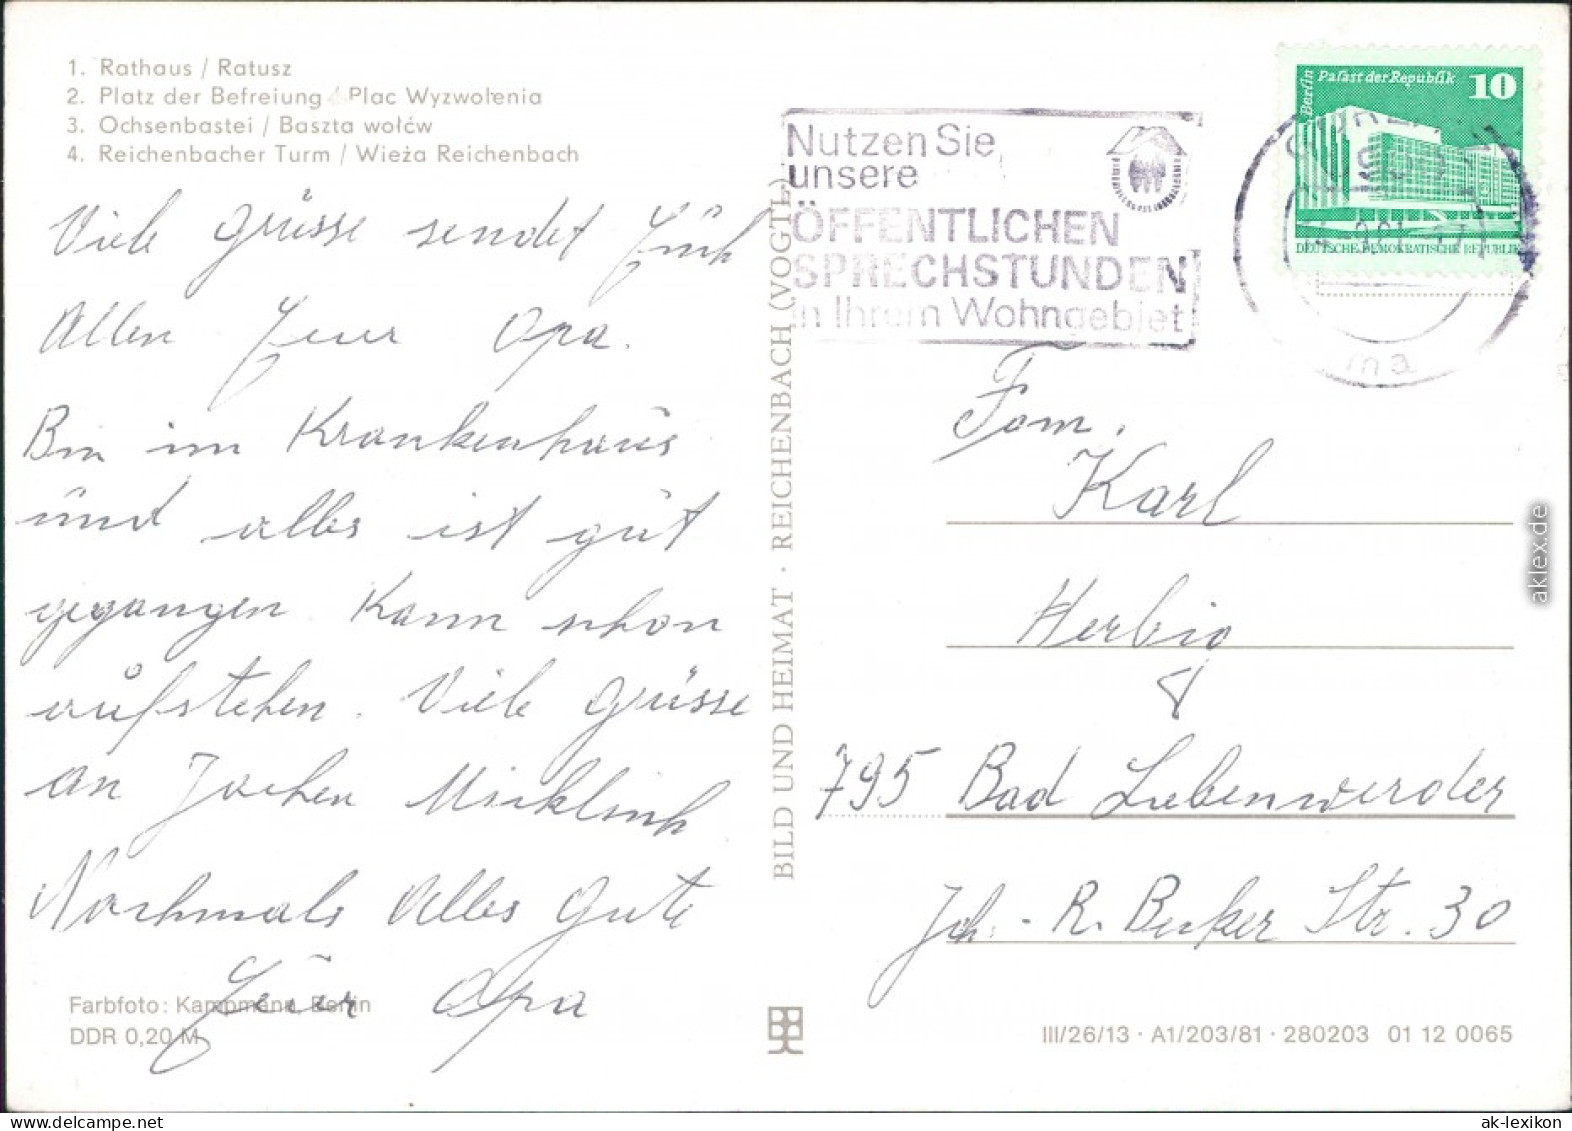 1. Rathaus / Ratusz
2. Platz der Befreiung / Plac Wyzwolenia
3. Ochsenbastei / Baszta wołów
4. Reichenbacher Turm / Wieża Reichenbach
Viele Grüsse sendet Euch
Allen Euer Opa.
Bin im Krankenhaus
und alles ist gut
gegangen. Kann schon
aufstehen. Viele Grüsse
an Jochen
Nochmals Alles Gute
Euer Opa
Farbfoto: Kampmann, Berlin
DDR 0,20 M
BILD UND HEIMAT · REICHENBACH (VOGTL)
Nutzen Sie
unsere
ÖFFENTLICHEN
SPRECHSTUNDEN
in Ihrem Wohngebiet
Berlin Palast der Republik 10
DEUTSCHE DEMOKRATISCHE REPUBLIK
Fam.
Karl
Herbig
795 Bad Liebenwerder
Joh.-R. Becker Str. 30
III/26/13 · A1/203/81 · 280203 01 12 0065
aklex.de
ak-lexikon